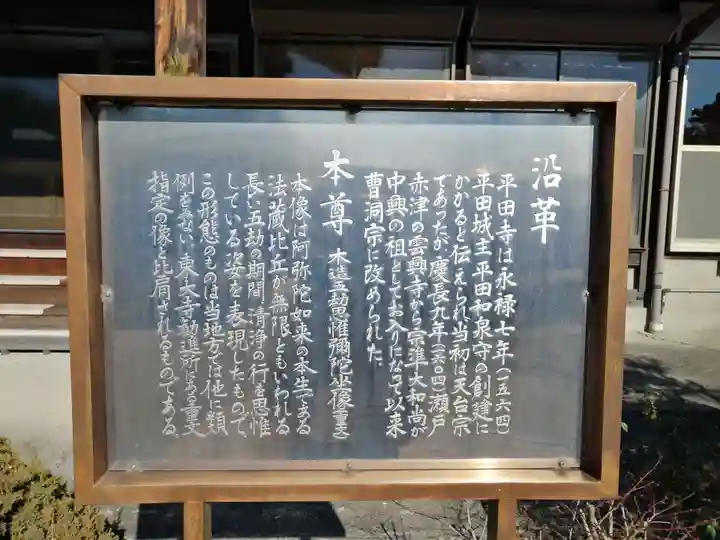 沿革
平田寺は永禄七年(一五六四)
平田城主平田和泉守の創建に
かかると伝えられ当初は天台宗
であったが慶長九年(一六〇四)瀬戸
赤津の雲興寺から宗準大和尚が
中興の祖としてお入りになって以来
曹洞宗に改められた。
本尊 木造五劫思惟彌陀坐像
本像は阿弥陀如来の本生である
法蔵比丘が無限ともいわれる
長い五劫の期間、清浄の行を思惟
している姿を表現したもので、
この形態のものは当地方では他に類
例をみない。東大寺勧進所にある重文
指定の像と比肩されるものである。